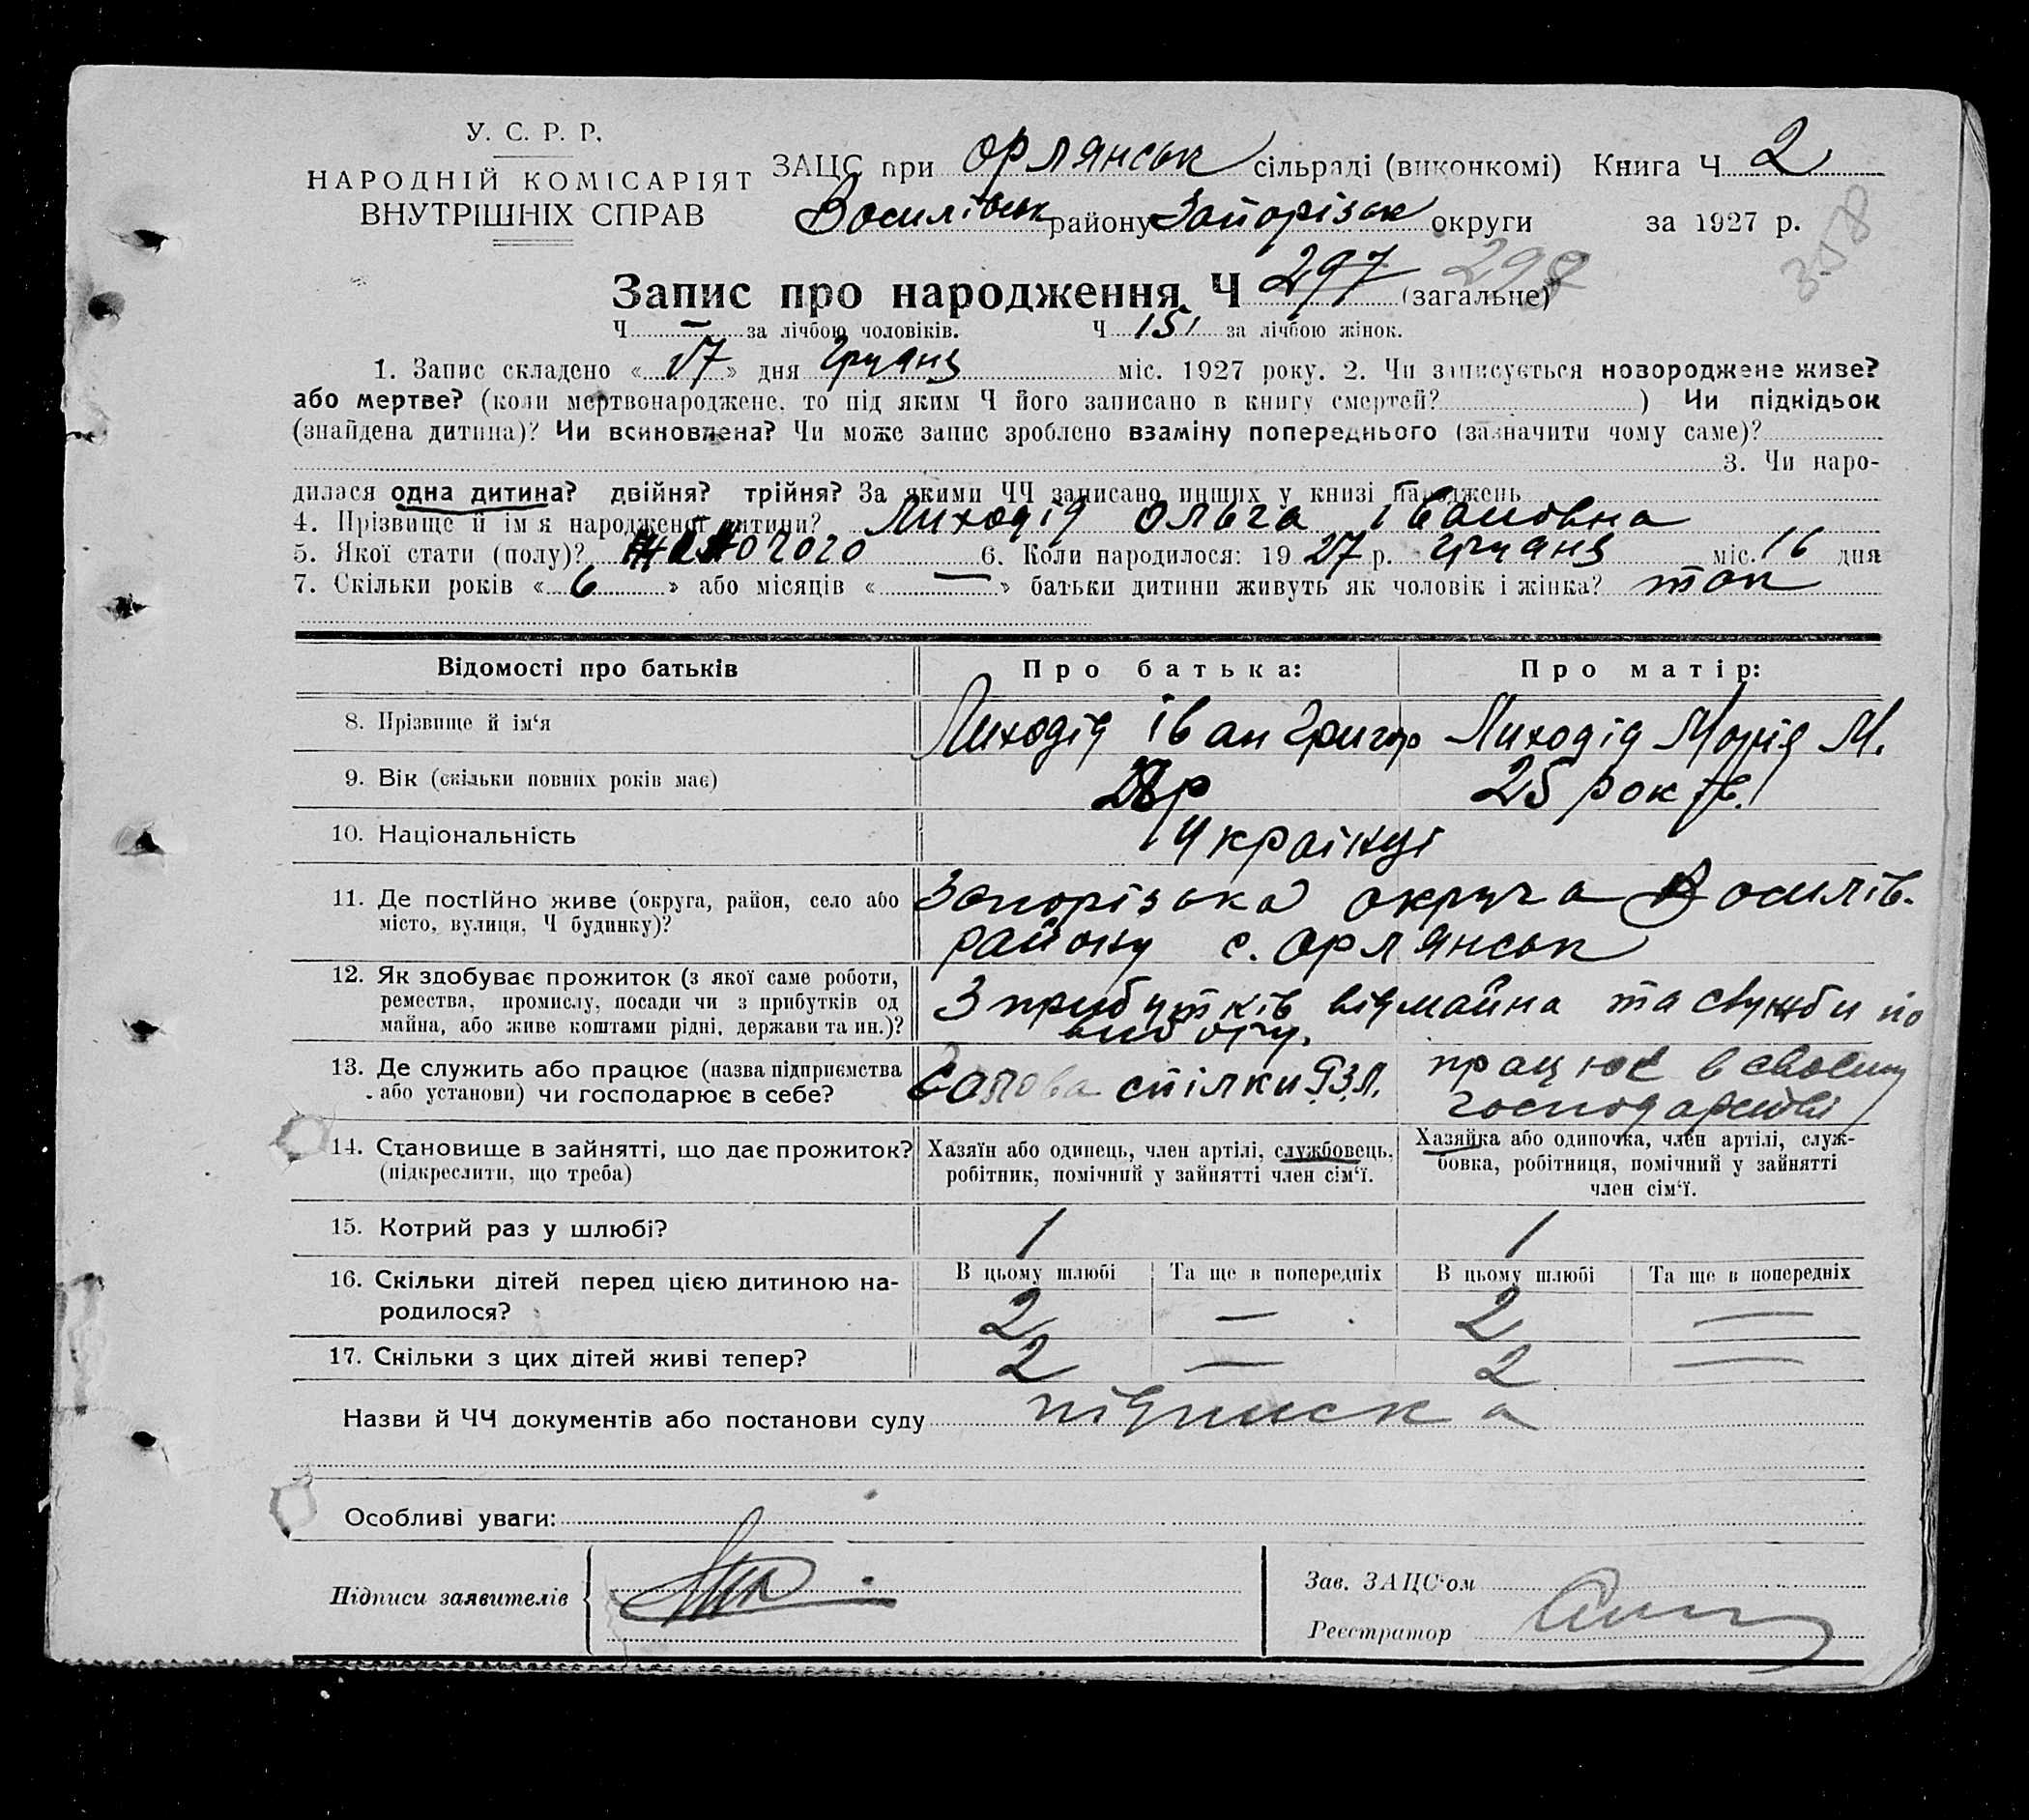 У. С. Р. Р.
НАРОДНІЙ КОМІСАРІЯТ
ВНУТРІШНІХ СПРАВ
ЗАЦС при Орлянськ сільраді (виконкомі) Книга Ч 2
Василівськ району Запорізьк округи за 1927 р.
358
Запис про народження Ч 297 298 (загальне)
Ч — за лічбою чоловіків. Ч 151 за лічбою жінок.
1. Запис складено « 17 » дня Грудня міс. 1927 року. 2. Чи записується новороджене живе?
або мертве? (коли мертвонароджене, то під яким Ч його записано в книгу смертей? ) Чи підкідьок
(знайдена дитина)? Чи всиновлена? Чи може запис зроблено взаміну попереднього (зазначити чому саме)?
3. Чи наро-
дилася одна дитина? двійня? трійня? За якими ЧЧ записано инших у книзі народжень
4. Прізвище й ім'я народженої дитини? Лиходід Ольга Івановна
5. Якої стати (полу)? жіночого 6. Коли народилося: 19 27 р. грудня міс. 16 дня
7. Скільки років « 6 » або місяців « — » батьки дитини живуть як чоловік і жінка? так
Відомості про батьків Про батька: Про матір:
8. Прізвище й ім'я Лиходід Іван Григор Лиходід Марія М.
9. Вік (скільки повних років має) 28 р 25 років.
10. Національність Українці
11. Де постійно живе (округа, район, село або Запорізька округа Василів.
місто, вулиця, Ч будинку)? району с. Орлянськ
12. Як здобуває прожиток (з якої саме роботи, З прибутків від майна та служби по
ремества, промислу, посади чи з прибутків од
майна, або живе коштами рідні, держави та ин.)? виборгу.
13. Де служить або працює (назва підприємства Голова спілки Р.З.Л. працює в своєму
або установи) чи господарює в себе? господарстві
14. Становище в зайнятті, що дає прожиток? Хазяїн або одинець, член артілі, службовець, Хазяйка або одиночка, член артілі, служ-
(підкреслити, що треба) робітник, помічний у зайнятті член сім'ї. бовка, робітниця, помічний у зайнятті
член сім'ї.
15. Котрий раз у шлюбі? 1 1
16. Скільки дітей перед цією дитиною на- В цьому шлюбі Та ще в попередніх В цьому шлюбі Та ще в попередніх
родилося? 2 — 2 —
17. Скільки з цих дітей живі тепер? 2 — 2 —
Назви й ЧЧ документів або постанови суду підписка
Особливі уваги:
Підписи заявителів
Зав. ЗАЦС'ом
Реєстратор